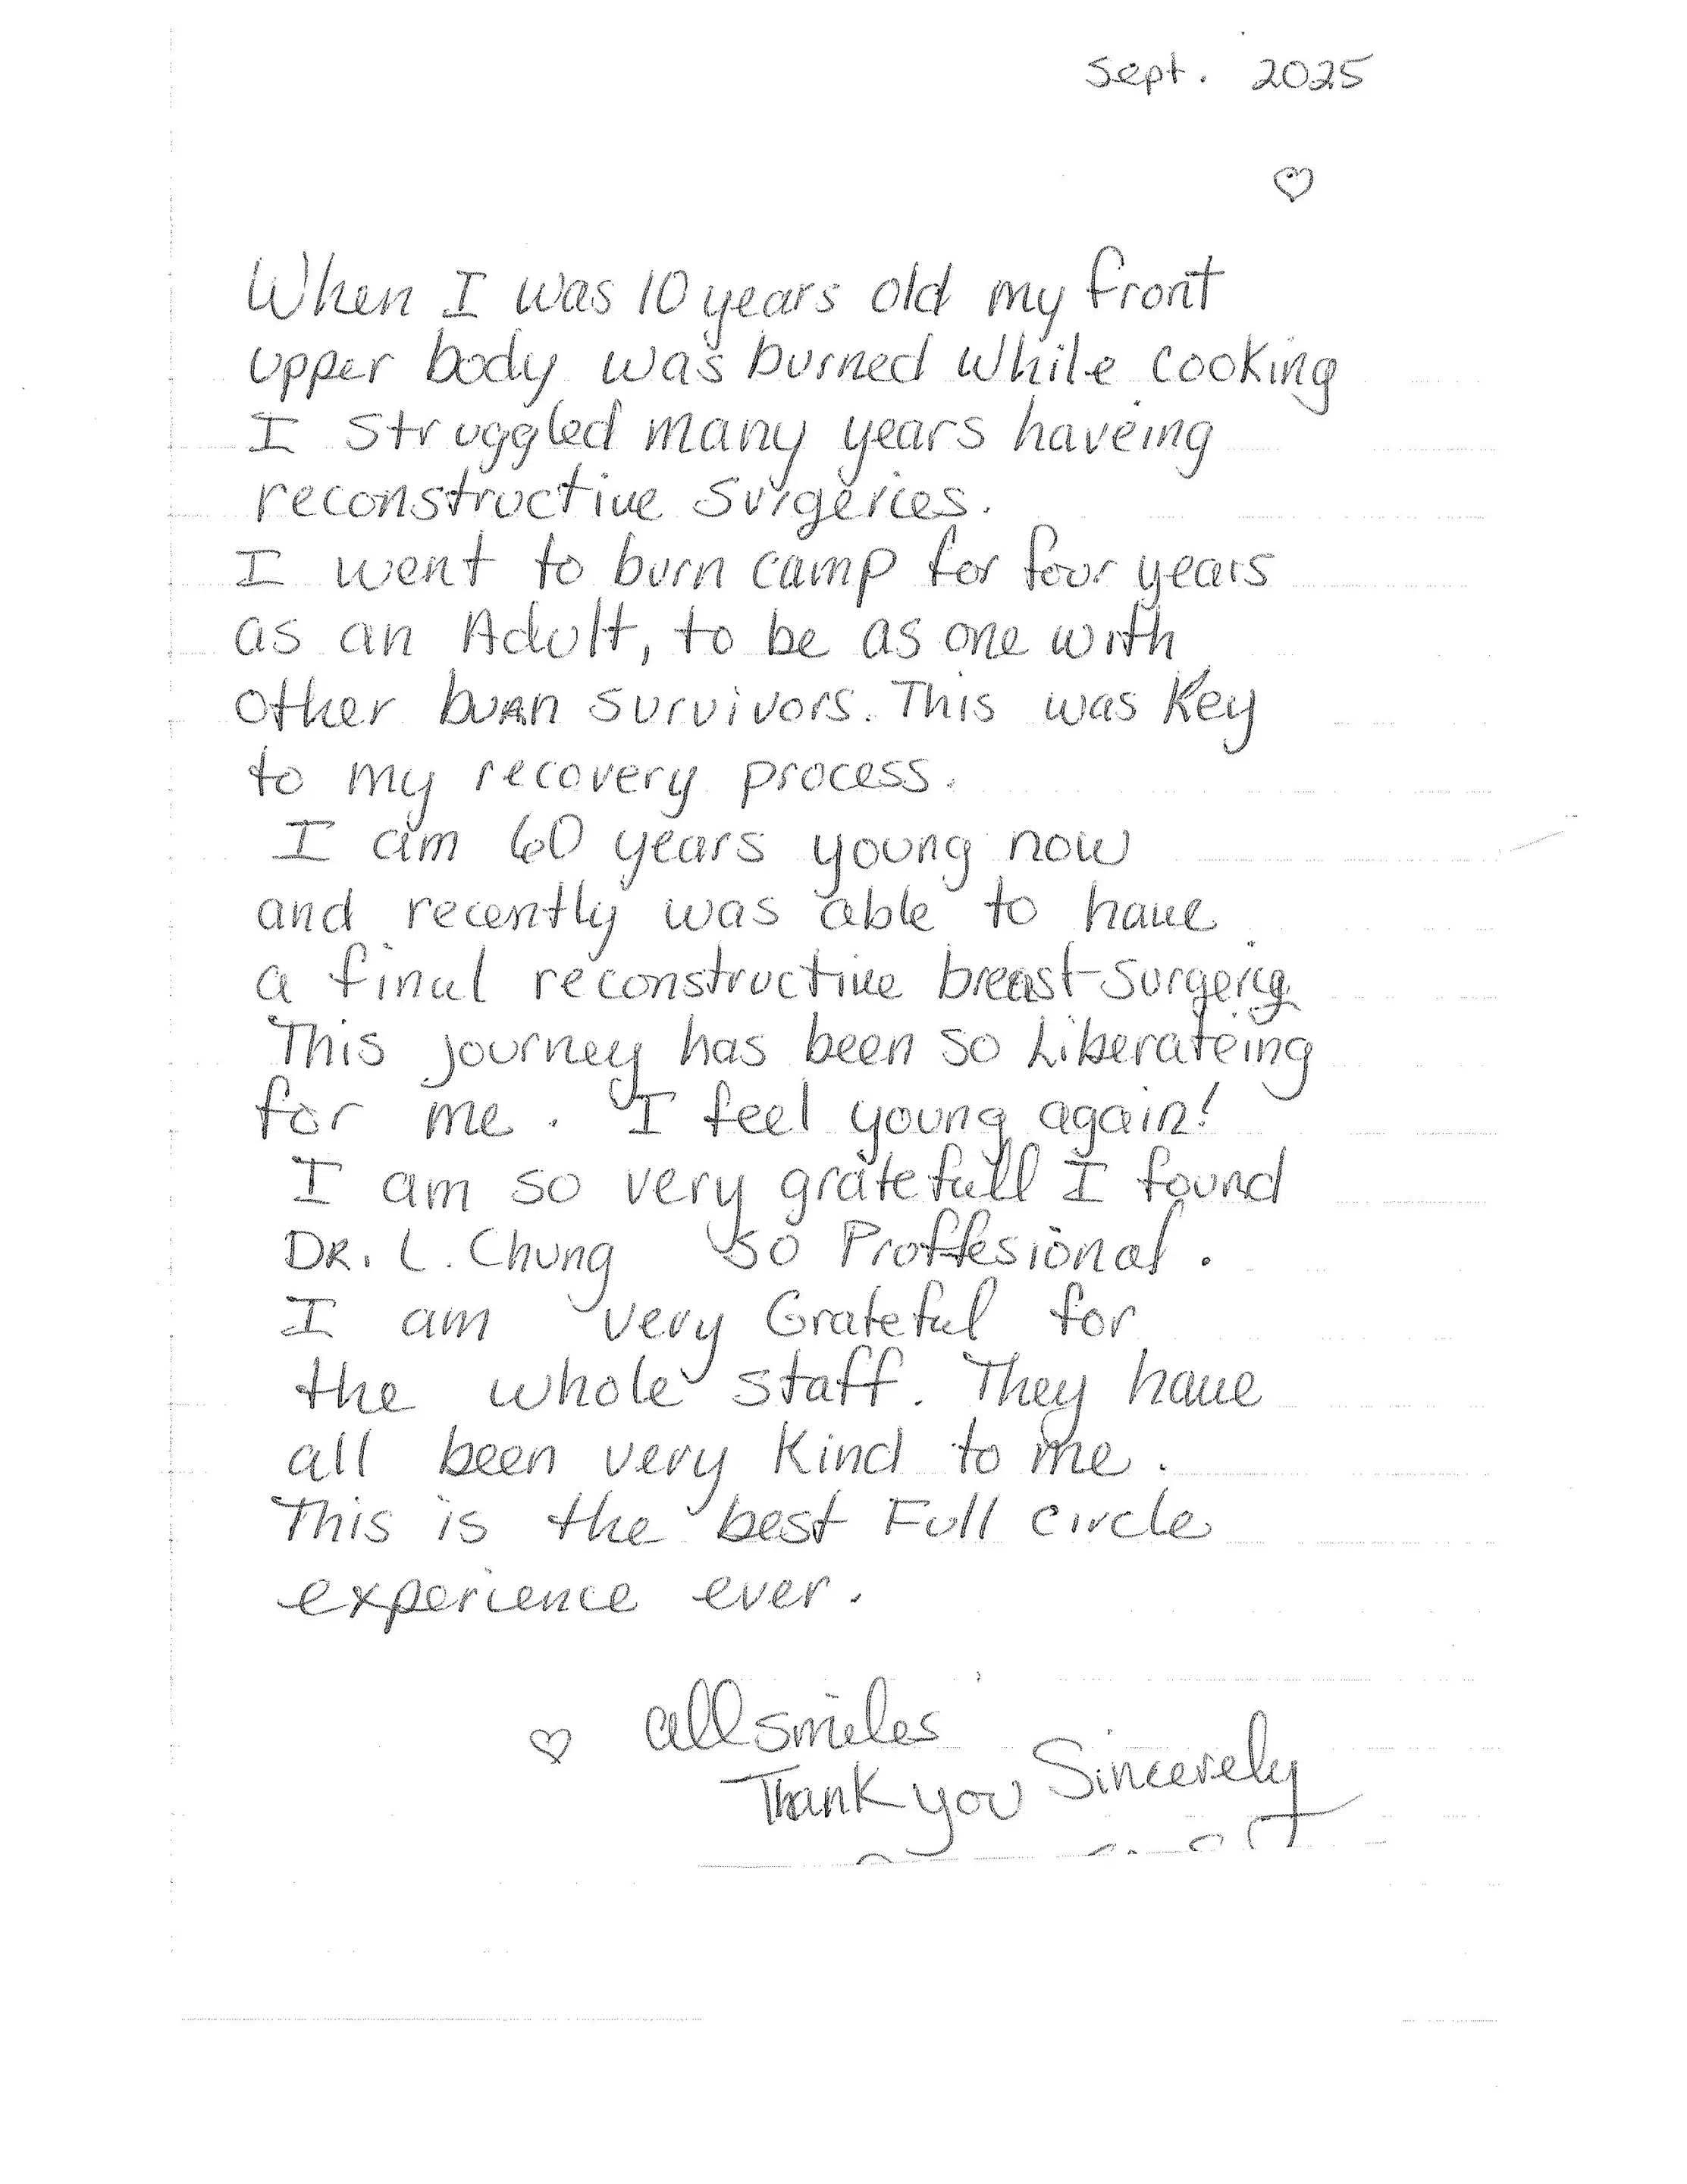 Sept. 2025
When I was 10 years old my front
upper body was burned while cooking
I struggled many years haveing
reconstructive surgeries.
I went to burn camp for four years
as an Adult, to be as one with
other burn survivors. This was key
to my recovery process.
I am 60 years young now
and recently was able to have
a final reconstructive breast surgery
This journey has been so Liberateing
for me. I feel young again!
I am so very gratefull I found
DR. L. Chung so Proffesional.
I am very Grateful for
the whole staff. They have
all been very kind to me.
This is the best Full circle
experience ever.
all smiles
Thank you Sincerely